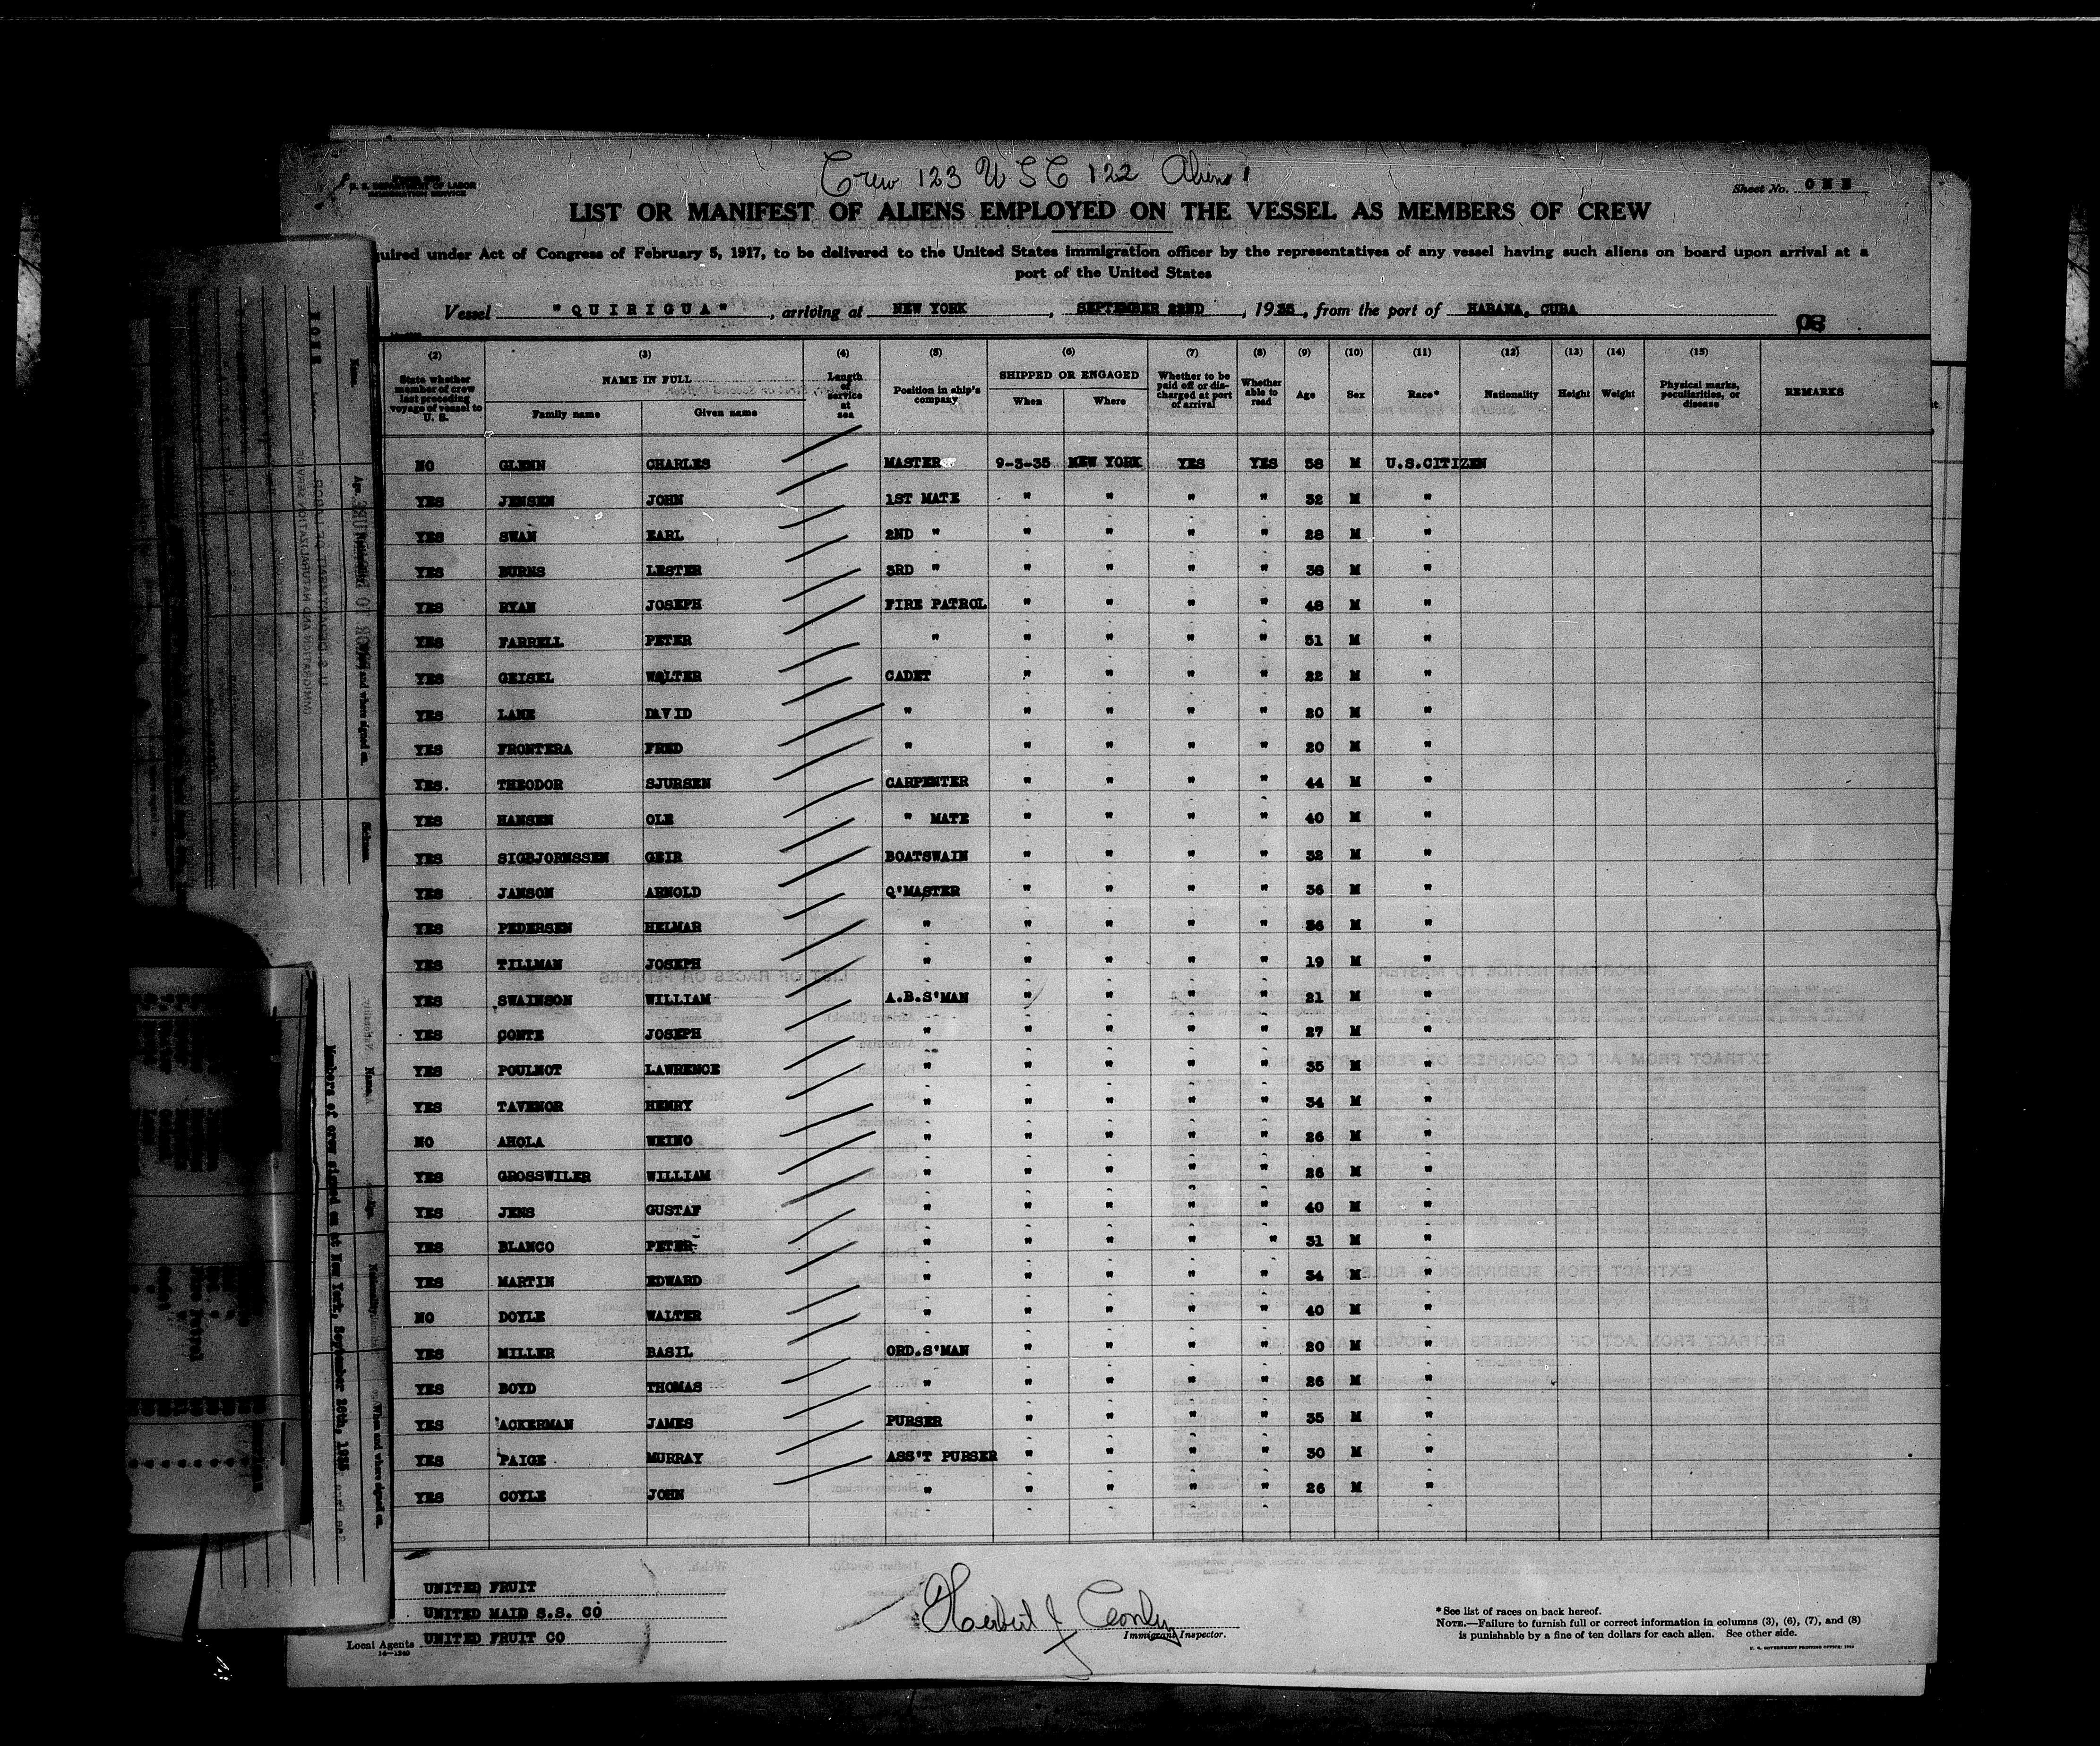 Crew 123 USC 122 Aliens 1
U. S. DEPARTMENT OF LABOR
IMMIGRATION SERVICE
Sheet No. ONE
LIST OR MANIFEST OF ALIENS EMPLOYED ON THE VESSEL AS MEMBERS OF CREW
quired under Act of Congress of February 5, 1917, to be delivered to the United States immigration officer by the representatives of any vessel having such aliens on board upon arrival at a
port of the United States
Vessel "QUIRIGUA", arriving at NEW YORK, SEPTEMBER 22ND, 1935, from the port of HABANA, CUBA
(2) (3) (4) (5) (6) (7) (8) (9) (10) (11) (12) (13) (14) (15)
State whether member of crew last preceding voyage of vessel to U. S. NAME IN FULL Family name Given name Length of service at sea Position in ship's company SHIPPED OR ENGAGED When Where Whether to be paid off or discharged at port of arrival Whether able to read Age Sex Race* Nationality Height Weight Physical marks, peculiarities, or disease REMARKS
NO GLENN CHARLES MASTER 9-3-35 NEW YORK YES YES 58 M U.S.CITIZEN
YES JENSEN JOHN 1ST MATE " " " " 32 M "
YES SWAN EARL 2ND " " " " " 28 M "
YES BURNS LESTER 3RD " " " " " 38 M "
YES RYAN JOSEPH FIRE PATROL " " " " 48 M "
YES FARRELL PETER " " " " " 51 M "
YES GEISEL WALTER CADET " " " " 22 M "
YES LANE DAVID " " " " " 20 M "
YES FRONTERA FRED " " " " " 20 M "
YES. THEODOR SJURSEN CARPENTER " " " " 44 M "
YES HANSEN OLE " MATE " " " " 40 M "
YES SIGBJORNSSEN GEIR BOATSWAIN " " " " 32 M "
YES JANSON ARNOLD Q'MASTER " " " " 36 M "
YES PEDERSEN HELMAR " " " " " 36 M "
YES TILLMAN JOSEPH " " " " " 19 M "
YES SWAINSON WILLIAM A.B.S'MAN " " " " 21 M "
YES CONTE JOSEPH " " " " " 27 M "
YES POULNOT LAWRENCE " " " " " 35 M "
YES TAVENOR HENRY " " " " " 34 M "
NO AHOLA WEINO " " " " " 26 M "
YES GROSSWILER WILLIAM " " " " " 26 M "
YES JENS GUSTAF " " " " " 40 M "
YES BLANCO PETER " " " " " 31 M "
YES MARTIN EDWARD " " " " " 34 M "
NO DOYLE WALTER " " " " " 40 M "
YES MILLER BASIL ORD.S'MAN " " " " 20 M "
YES BOYD THOMAS " " " " " 26 M "
YES ACKERMAN JAMES PURSER " " " " 35 M "
YES PAIGE MURRAY ASS'T PURSER " " " " 30 M "
YES COYLE JOHN " " " " " 26 M "
UNITED FRUIT
UNITED MAID S.S. CO
Local Agents UNITED FRUIT CO
14—1240
Immigrant Inspector.
*See list of races on back hereof.
NOTE.—Failure to furnish full or correct information in columns (3), (6), (7), and (8)
is punishable by a fine of ten dollars for each alien. See other side.
Members of crew signed on at New York, September 20th, 1935